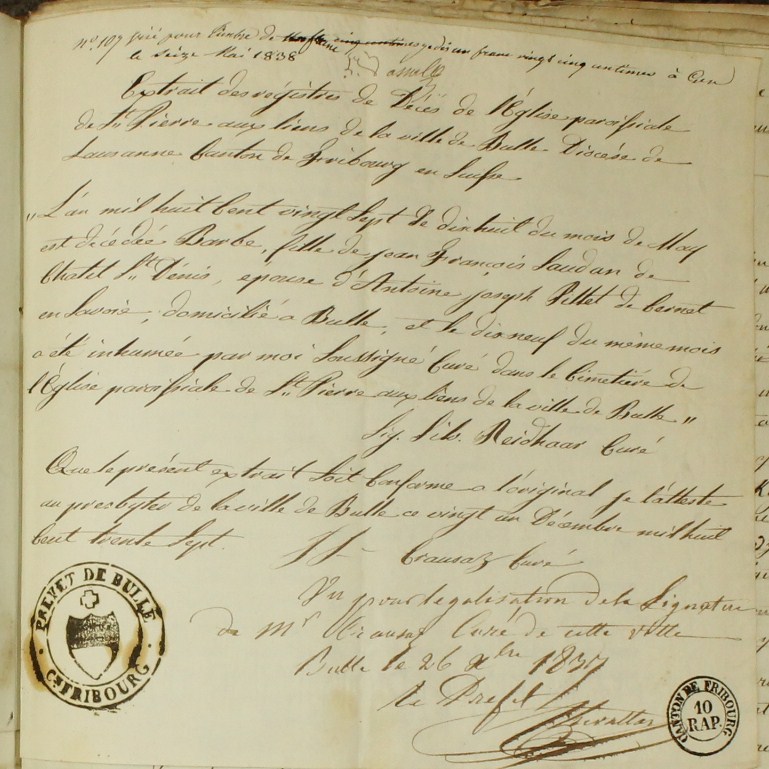 n.° 107 visé pour timbre de un franc vingt cinq centimes à
le Seize Mai 1838
Extrait des régistres de Décès de l'Église paroissiale
de St. Pierre aux liens de la ville de Bulle Diocèse de
Lausanne Canton de Fribourg en Suisse
„L'an mil huit Cent vingt Sept le dixhuit du mois de May
est décédée Barbe, fille de jean François Saudan de
Chatel St. Dénis, epouse d'Antoine joseph Pillet de Cernet
en Savoie, domicilié a Bulle, et le dixneuf du même mois
a été inhumée par moi Soussigné Curé dans le Cimetière de
l'Église paroissiale de St. Pierre aux liens de la ville de Bulle„
Sig. Neidhaar Curé
Que le présent extrait Soit Conforme a l'original je l'atteste
au presbyter de la ville de Bulle ce vingt un Décembre mil huit
Cent trente Sept.
Crausaz Curé
Vu pour légalisation de la Signature
de Mr Crausaz Curé de cette ville
Bulle le 26 Xbre 1837
Le Préfet
PRÉFET DE BULLE
Cn. FRIBOURG
CANTON DE FRIBOURG
10
RAP.